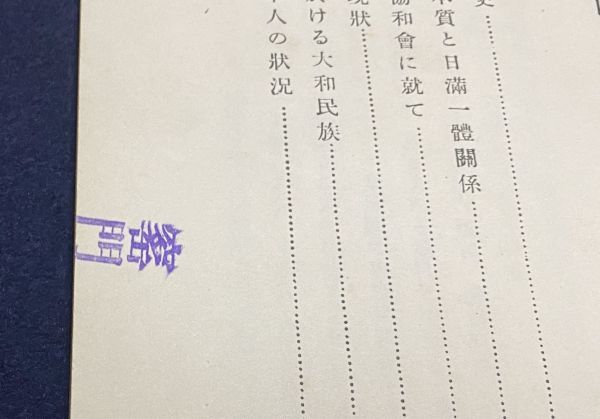 史
本質と日滿一體關係
協和會に就て
現狀
於ける大和民族
本人の狀況